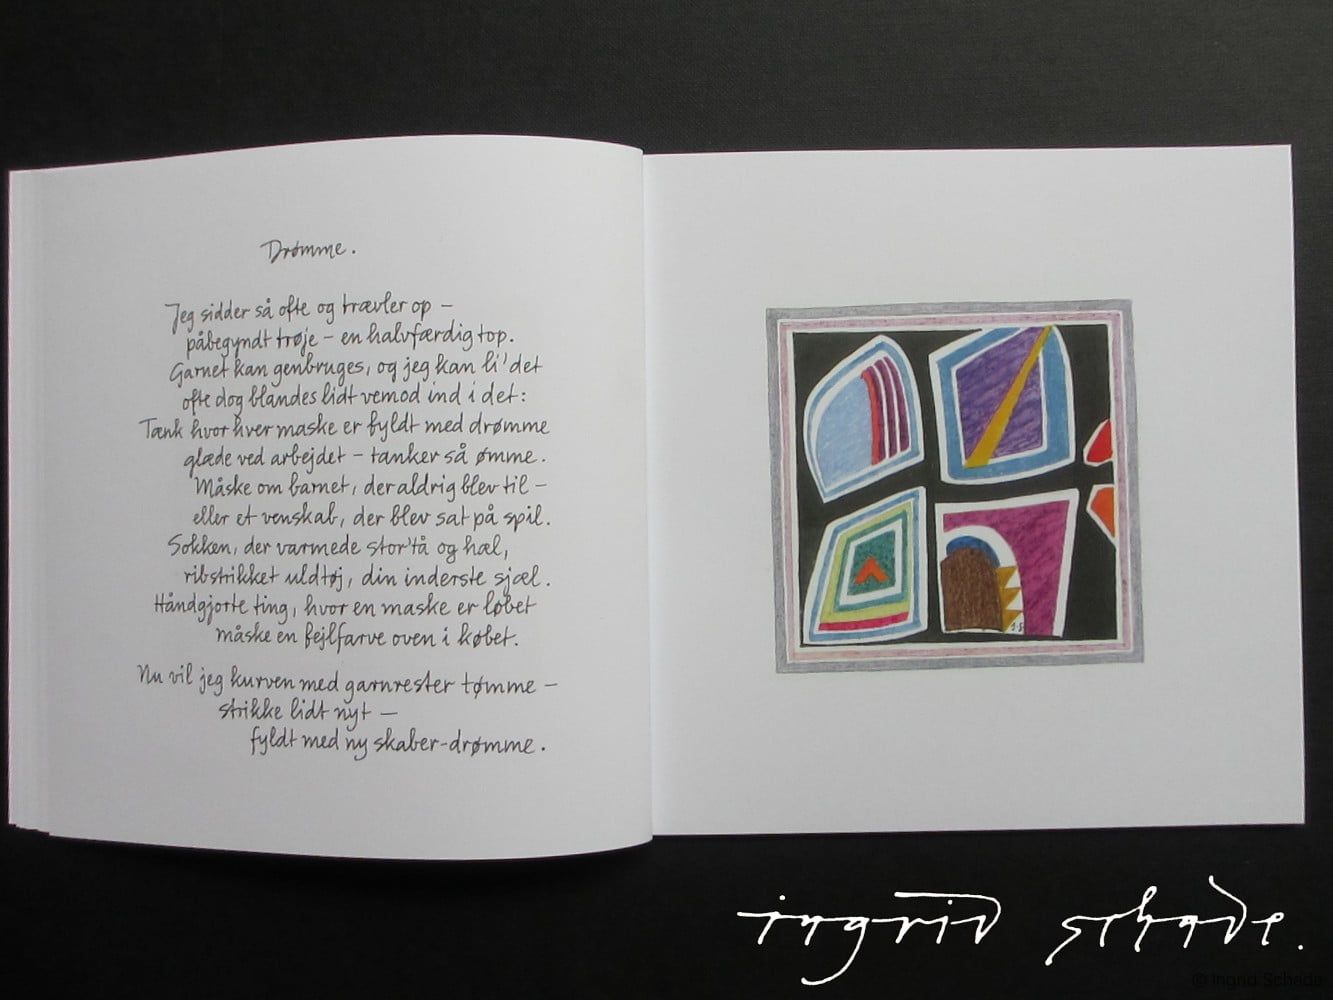 Drømme.
Jeg sidder så ofte og trævler op –
påbegyndt trøje – en halvfærdig top.
Garnet kan genbruges, og jeg kan li' det
ofte dog blandes lidt vemod ind i det:
Tænk hvor hver maske er fyldt med drømme
glæde ved arbejdet – tanker så ømme.
Måske om barnet, der aldrig blev til –
eller et venskab, der blev sat på spil.
Sokken, der varmede stor'tå og hæl,
ribstrikket uldtøj, din inderste sjæl.
Håndgjorte ting, hvor en maske er løbet
måske en fejlfarve oven i købet.
Nu vil jeg kurven med garnrester tømme –
strikke lidt nyt –
fyldt med ny skaber-drømme.
I.S
ingrid schade.
© Ingrid Schade